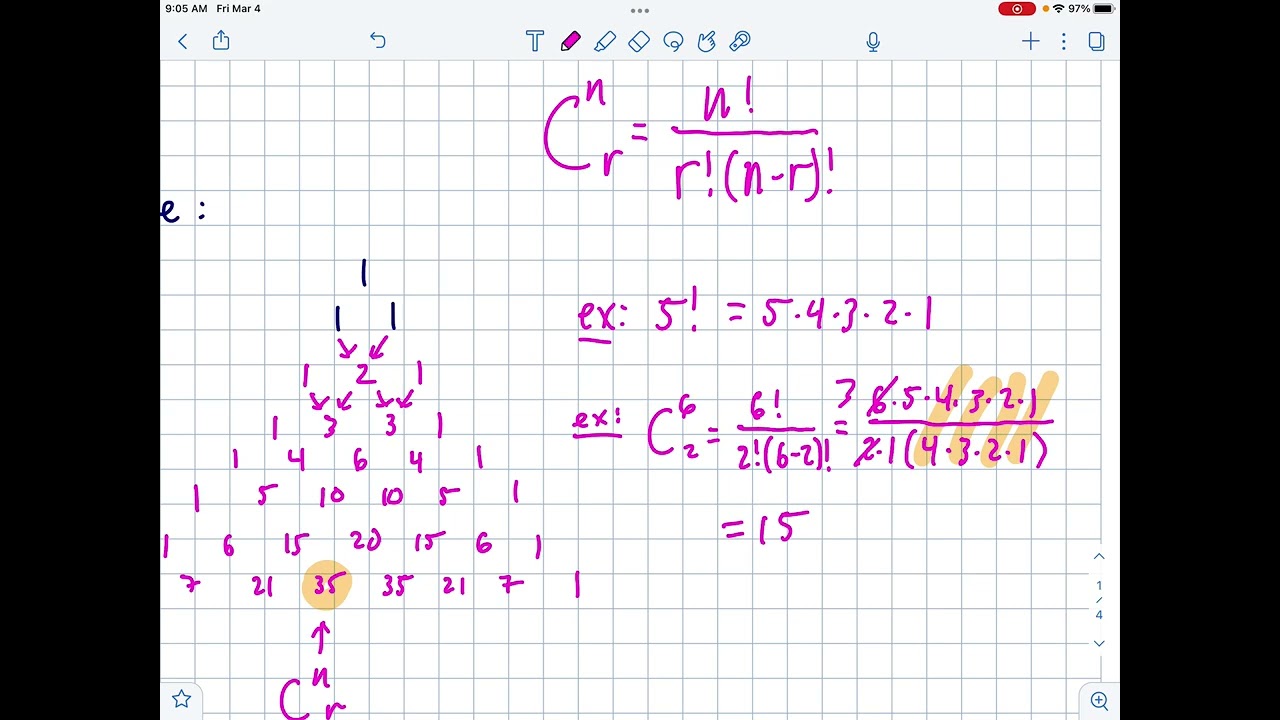 9:05 AM Fri Mar 4
97%
T
C^n_r = n! / r!(n-r)!
e :
1
1 1
1 2 1
1 3 3 1
1 4 6 4 1
1 5 10 10 5 1
1 6 15 20 15 6 1
7 21 35 35 21 7 1
C^n_r
ex: 5! = 5·4·3·2·1
ex: C^6_2 = 6! / 2!(6-2)! = 3 6·5·4·3·2·1 / 2·1(4·3·2·1)
= 15
1
/
4